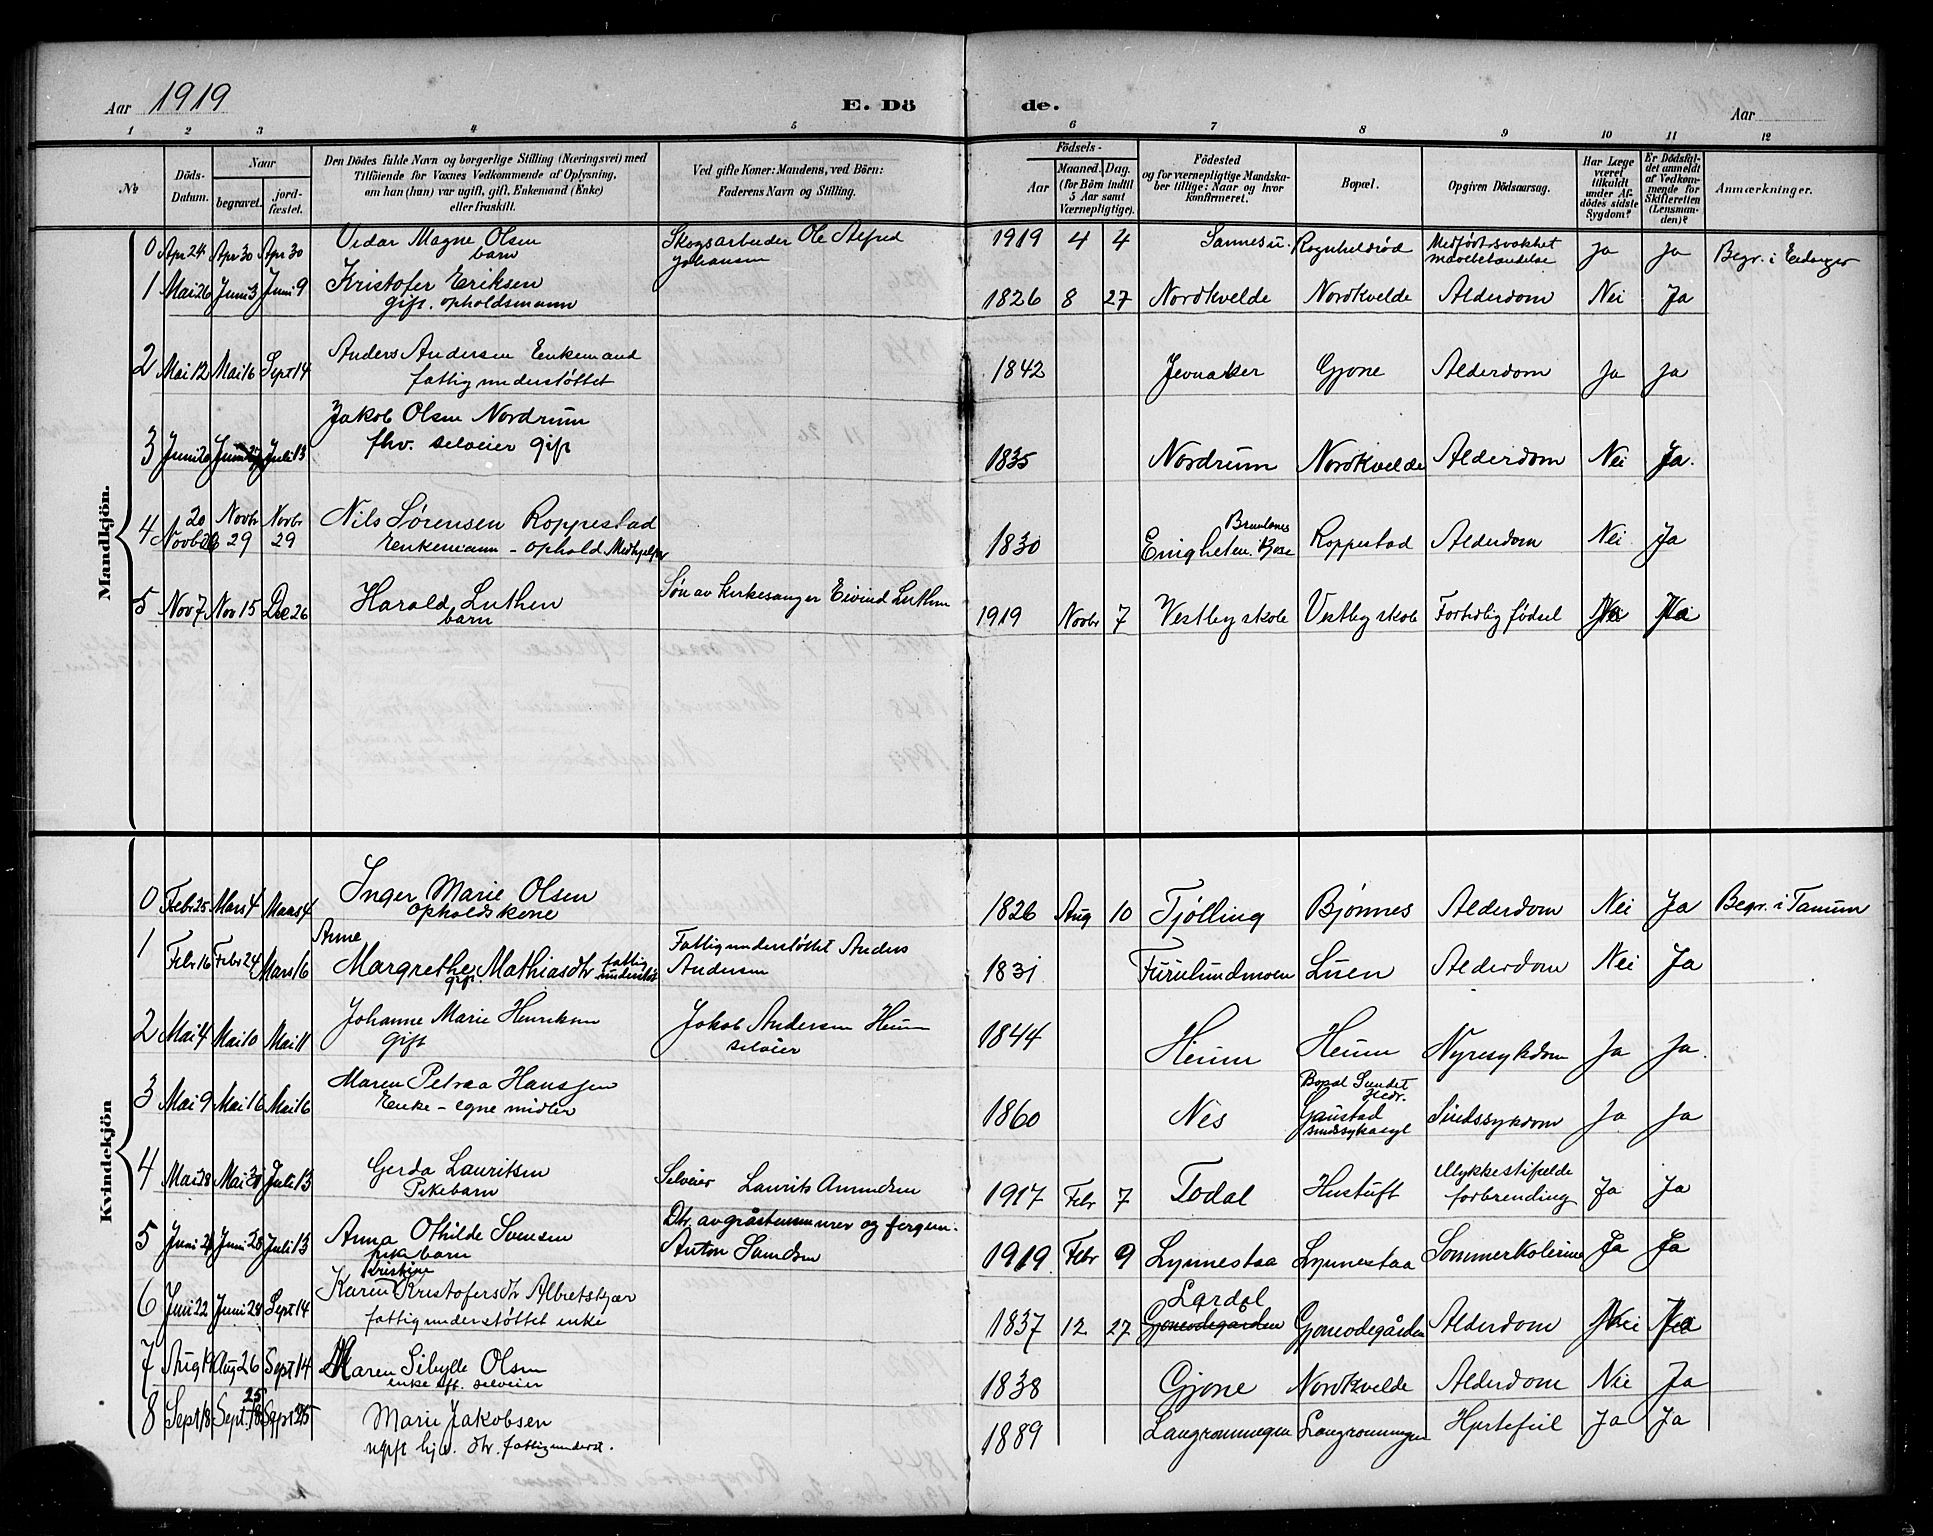 Aar 1919 E. Dö de. Aar
1 2 3 4 5 6 7 8 9 10 11 12
No Döds-Datum. Naar begravet. jordfæstet. Den Dödes fulde Navn og borgerlige Stilling (Næringsvei) med Tilföiende for Voxnes Vedkommende af Oplysning, om han (hun) var ugift, gift, Enkemand (Enke) eller fraskilt. Ved gifte Koner: Mandens, ved Börn: Faderens Navn og Stilling. Födsels- Aar Maaned. Dag. (for Börn indtil 5 Aar samt Værnepligtige). Födested og for værnepligtige Mandskaber tillige: Naar og hvor konfirmeret. Bopæl. Opgiven Dödsaarsag. Har Læge været tilkaldt under Afdödes sidste Sygdom? Er Dödsfaldet anmeldt af Vedkommende for Skifteretten (Lensmanden)? Anmærkninger.
Mandkjön.
0 Apr 24 Apr 30 Apr 30 Vidar Magne Olsen Skogsarbeider Ole Alfred 1919 4 4 Sannes u. Rognheldrød Medført svakhet Ja Ja Begr. i Eidanger
barn Johansen mavebetændelse
1 Mai 26 Juni 3 Juni 9 Kristofer Eriksen 1826 8 27 Nordkvelde Nordkvelde Alderdom Nei Ja
gift. opholdsmann
2 Mai 12 Mai 16 Sept 14 Anders Andersen Enkemand 1842 Jevnaker Gjone Alderdom Ja Ja
fattigunderstøttet
Jakob Olsen Nordrum
3 Juni 20 Juni Juli 13 fhv. selveier gift 1835 Nordrum Nordkvelde Alderdom Nei Ja.
20 Novbr Novbr Nils Sørensen Roppestad Brunlanes
4 Novb 29 29 Enkemann - ophold Medhjelper 1830 Enigheten i Roppestad Alderdom Nei Ja
5 Nov 7 Nov 15 Dec 26 Harald Luthen Søn av Kirkesanger Eivind Luthen 1919 Novbr 7 Vestby skole Vestby skole Fortidlig fødsel
barn
Kvindekjön
0 Febr 25 Mars 4 Mars 4 Inger Marie Olsen 1826 Aug 10 Tjølling Bjønnes Alderdom Nei Ja Begr. i Tanum
opholdskone
Anne Fattigunderstøttet Anders
1 Febr 16 Febr 24 Mars 16 Margrethe Mathiasdtr fattig understøt Andersen 1831 Furulundmoen Luen Alderdom Nei Ja
gift.
2 Mai 4 Mai 10 Mai 11 Johanne Marie Henriksen Jakob Andersen Heum 1844 Heum Heum Nyresykdom Ja Ja.
gift selveier
Maren Petraa Hanssen Bopæl Sundet Hedr.
3 Mai 9 Mai 16 Mai 16 Enke - egne midler 1860 Nes Gaustad sindssykasyl Sindssykdom Ja Ja
4 Mai 28 Mai 31 Juli 13 Gerda Lauritsen Selveier Laurits Amundsen 1917 Febr 7 Todal Hustuft forbrending Ja Ja
Pikebarn Dtr. av gråstensmurer og
5 Juni 21 Juni 28 Juli 13 Anna Othilde Svensen Anton 1919 Febr 9 Lynnestaa Lynnestaa Sommerkolerine Ja Ja
pikebarn
Kristine Lardal
6 Juni 22 Juni 28 Sept 14 Karen Kristofersdtr Albretskjær 1837 12 27 Gjoneødegården Gjoneødegården Alderdom
fattigunderstøttet enke
7 Aug 19 Aug 26 Sept 14 Maren Sibylle Olsen 1838 Gjone Nordkvelde Alderdom Nei Ja
enke eft. selveier
25
8 Sept 18 Sept. 18 Sept 25 Marie Jakobsen 1889 Langrønningen Langrønningen Hjertefeil Ja Ja
ugift hjv. dtr. fattigunderst.